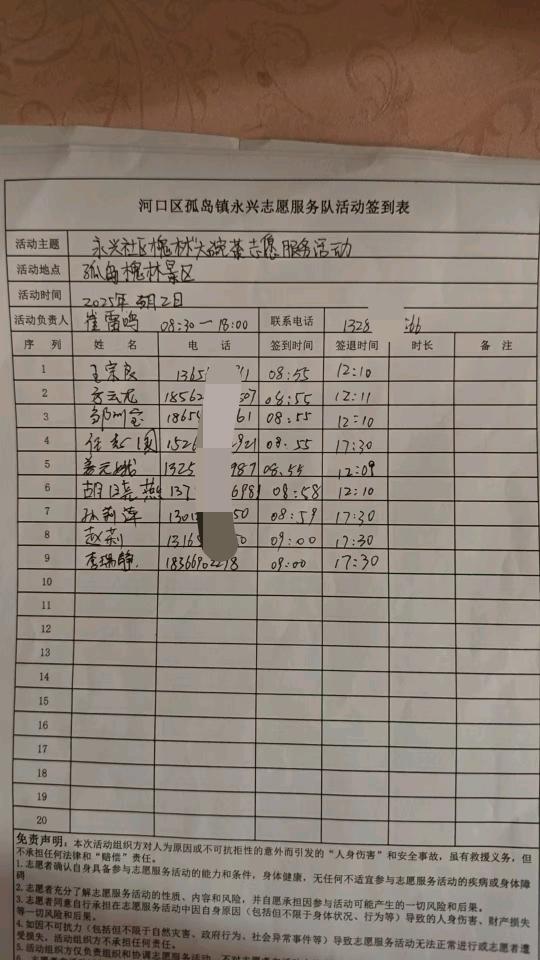 河口区孤岛镇永兴志愿服务队活动签到表
活动主题 永兴社区槐林大碗茶志愿服务活动
活动地点 孤岛槐林景区
活动时间 2025年5月2日
活动负责人 崔雷鸣 08:30—18:00 联系电话 1328
序 列 姓 名 电 话 签到时间 签退时间 时长 备 注
1 王宗良 1365 08:55 12:10
2 18562 507 08:55 12:11
3 1865 61 08:55 12:10
4 任 国 152 921 08:55 17:30
5 姜元 1325 987 08:55 12:09
6 胡晓燕 137 698 08:58 12:10
7 孙莉萍 1301 50 08:59 17:30
8 赵莉 1316 0 09:00 17:30
9 李瑞静 18366902218 09:00 17:30
10
11
12
13
14
15
16
17
18
19
20
免责声明：本次活动组织方对人为原因或不可抗拒性的意外而引发的“人身伤害”和安全事故，虽有救援义务，但
不承担任何法律和“赔偿”责任。
1. 志愿者确认自身具备参与志愿服务活动的能力和条件，身体健康，无任何不适宜参与志愿服务活动的疾病或身体障
碍
2. 志愿者充分了解志愿服务活动的性质、内容和风险，并自愿承担因参与活动可能产生的一切风险和后果。
3. 志愿者同意自行承担在志愿服务活动中因自身原因（包括但不限于身体状况、行为等）导致的人身伤害、财产损失
等一切风险和后果。
4. 如因不可抗力（包括但不限于自然灾害、政府行为、社会异常事件等）导致志愿服务活动无法正常进行或志愿者遭
受损失，活动组织方不承担任何责任。
5. 活动组织方仅负责组织和协调志愿服务活动，不对志愿者在活动